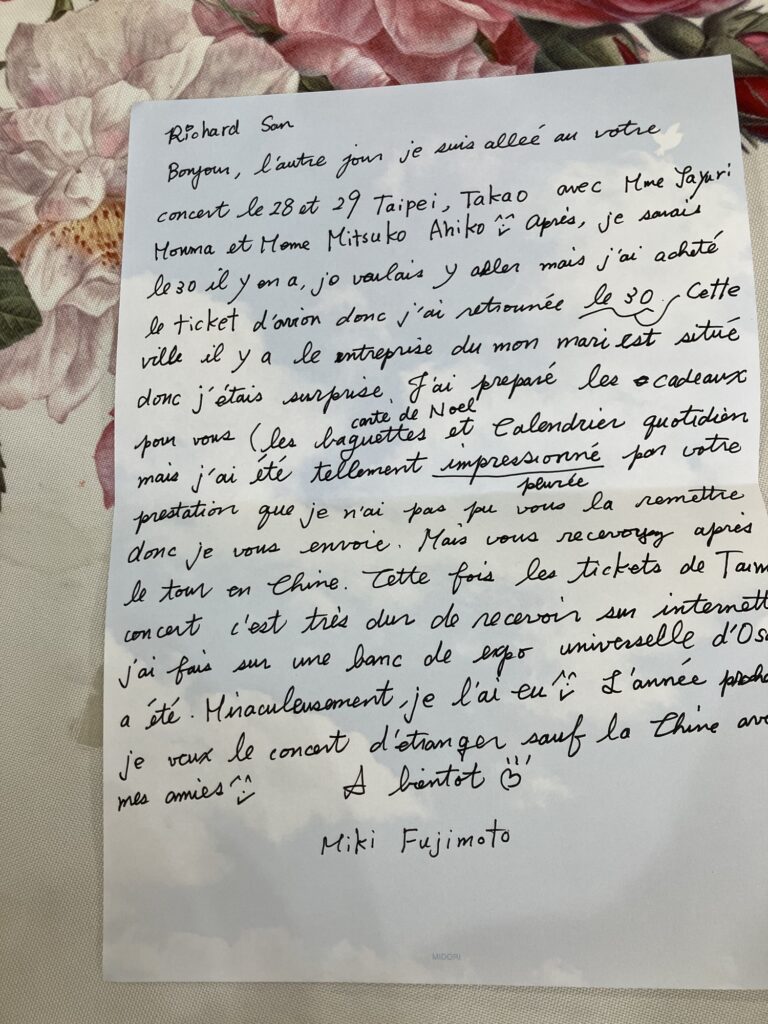 Richard San
Bonjour, l'autre jour je suis alleé au votre
concert le 28 et 29 Taipei, Takao avec Mme Sayuri
Monma et Mme Mitsuko Ahiko ^^ Après, je savais
le 30 il y en a, je voulais y aller mais j'ai acheté
le ticket d'avion donc j'ai retrounée le 30. Cette
ville il y a le entreprise du mon mari est situé
donc j'étais surprise. J'ai preparé les cadeaux
carte de Noel
pour vous (les baguettes et Calendrier quotidien
mais j'ai été tellement impressionné par votre
pleurée
prestation que je n'ai pas pu vous la remettre
donc je vous envoie. Mais vous recevoyez après
le tour en Chine. Cette fois les tickets de
concert c'est très dur de recevoir sur internett
j'ai fais sur une banc de expo universelle d'Osa
a été. Miraculeusement, je l'ai eu ^^ L'année
je veux le concert d'étranger sauf la Chine ave
mes amies ^^ A bientôt
Miki Fujimoto
MIDORI